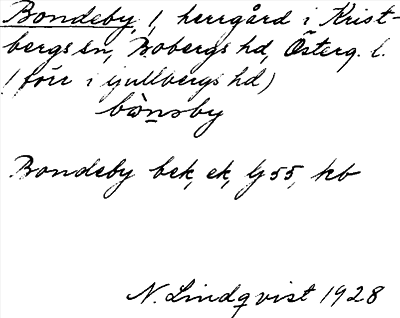 Bondeby, 1, herrgård i Krist-
bergs sn, Bobergs hd, Österg. l.
(förr i Gullbergs hd)
bònsby
Bondeby bek, ek, G 55, kb
N. Lindqvist 1928